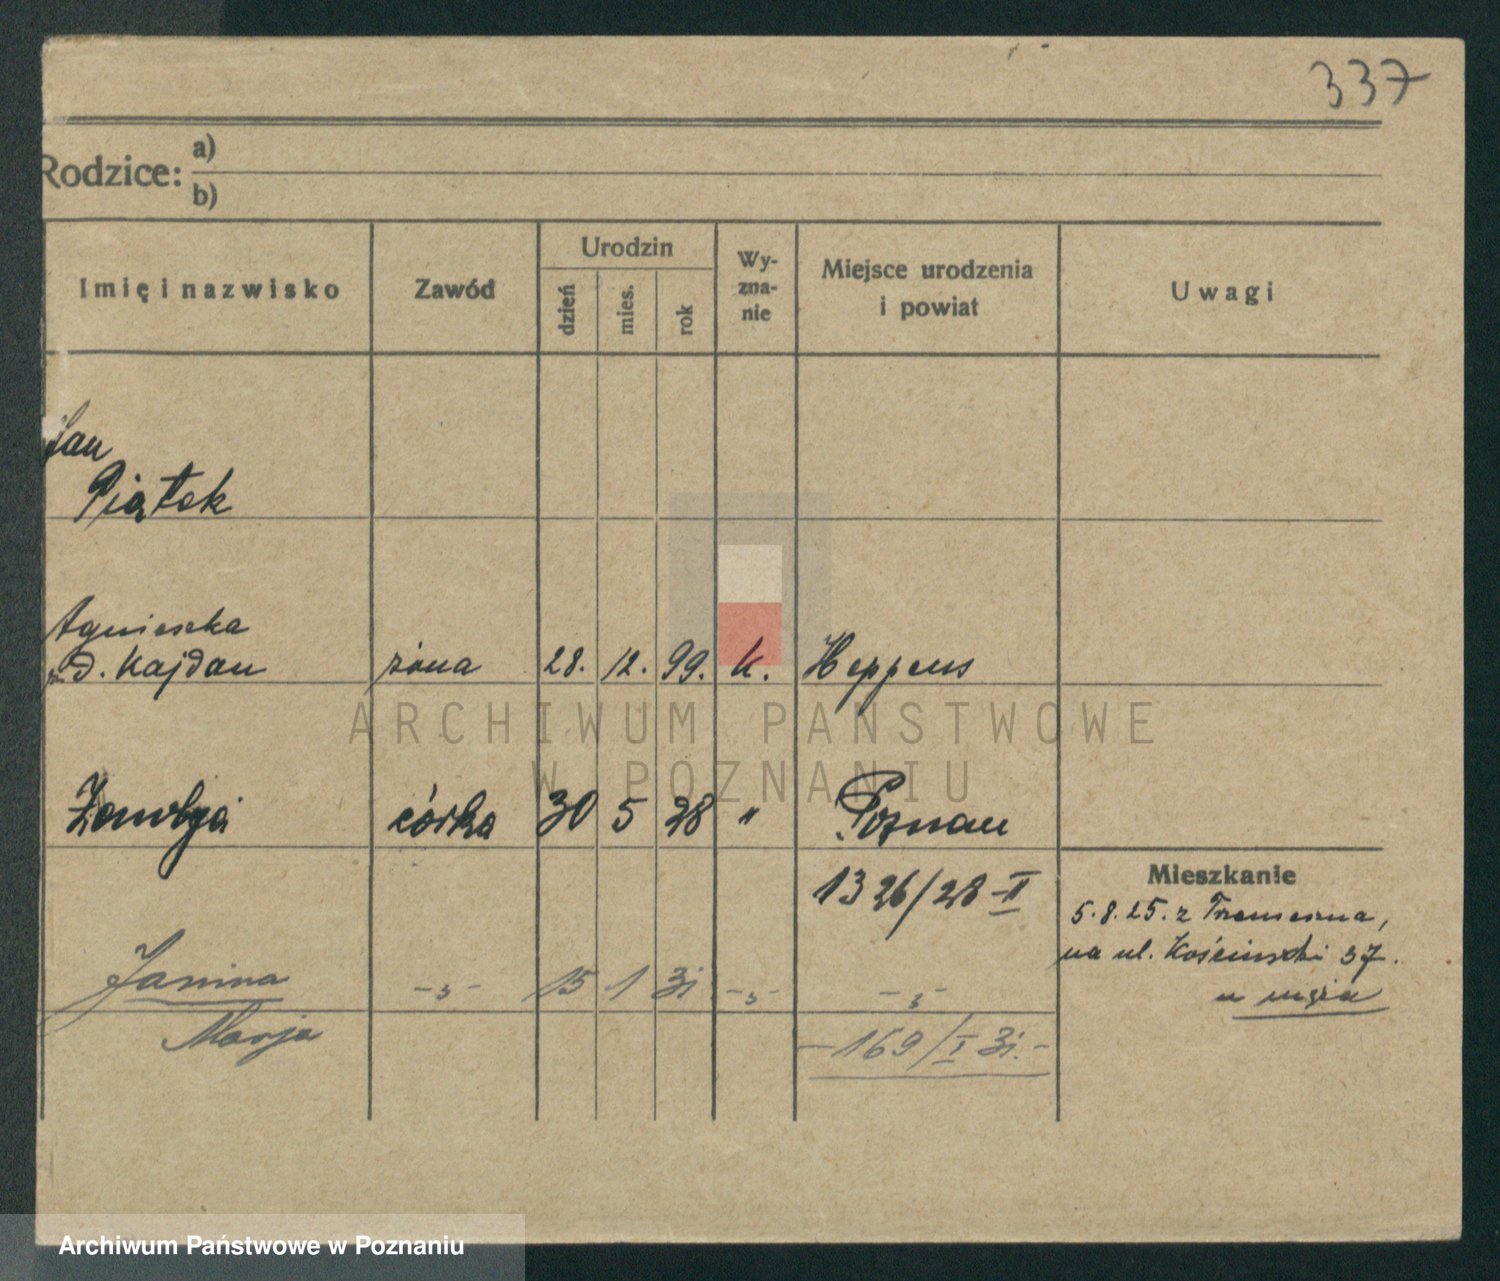 337
Rodzice: a)
b)
Imię i nazwisko
Zawód
Urodzin
dzień
mies.
rok
Wy-
zna-
nie
Miejsce urodzenia
i powiat
Uwagi
Jan
Piątek
Agnieszka
d. Kajdan żona 28. 12. 99. k. Heppens
córka 30 5 28 " Poznań
1326/28 II
Mieszkanie
5.8.25. z
na ul. 37.
Janina -„- 15 1 31 -„- -„-
Marja
-169/I 31.-
ARCHIWUM PAŃSTWOWE
W POZNANIU
Archiwum Państwowe w Poznaniu